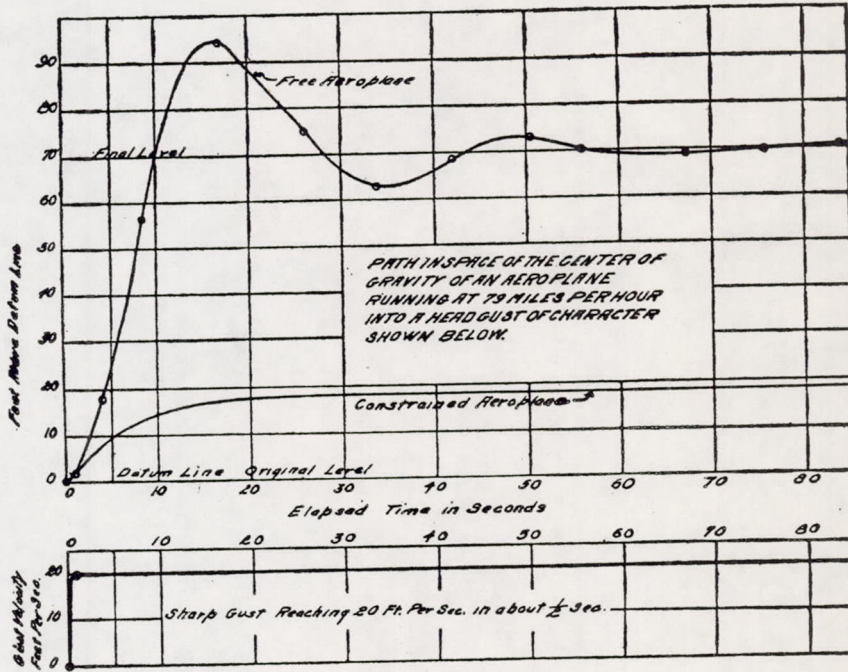 90
80
70
60
50
40
30
20
10
0
Feet Above Datum Line
Free Aeroplane
Final Level
PATH IN SPACE OF THE CENTER OF
GRAVITY OF AN AEROPLANE
RUNNING AT 79 MILES PER HOUR
INTO A HEAD GUST OF CHARACTER
SHOWN BELOW.
Constrained Aeroplane
Datum Line Original Level
0 10 20 30 40 50 60 70 80
Elapsed Time in Seconds
0 10 20 30 40 50 60 70 80
20
10
0
Gust Velocity
Feet Per Sec.
Sharp Gust Reaching 20 Ft. Per Sec. in about ½ Sec.